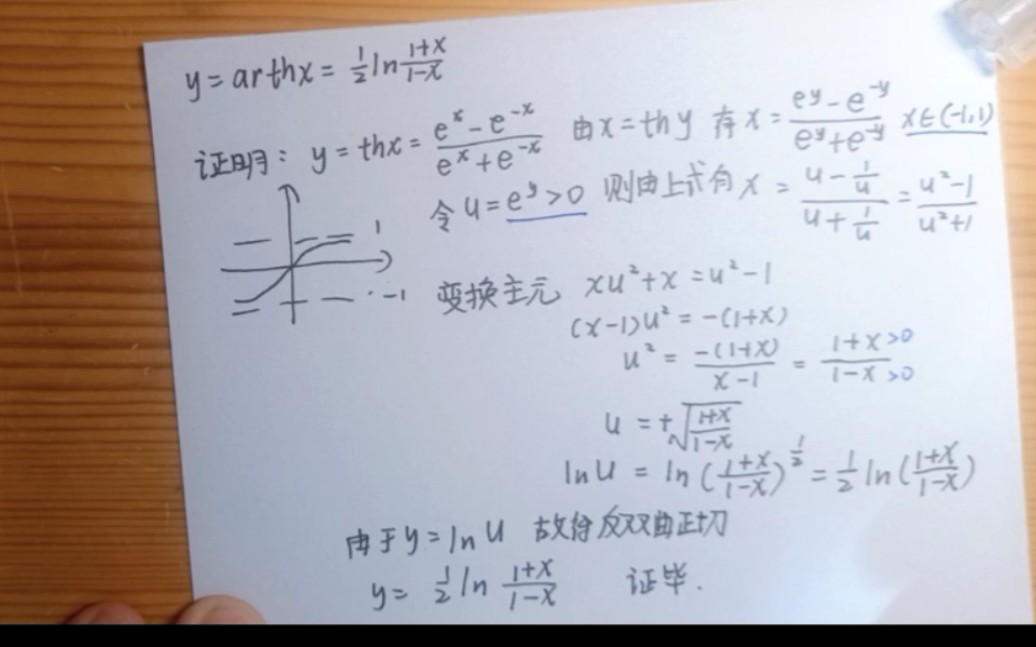 y = arthx = 1/2 ln (1+x)/(1-x)
证明: y = thx = (e^x - e^-x)/(e^x + e^-x) 由x = thy 存 x = (e^y - e^-y)/(e^y + e^-y) x∈(-1,1)
令 u = e^y > 0 则由上式有 x = (u - 1/u)/(u + 1/u) = (u² - 1)/(u² + 1)
1
-1
变换主元 xu² + x = u² - 1
(x-1)u² = -(1+x)
u² = -(1+x)/(x-1) = (1+x >0)/(1-x >0)
u = +√((1+x)/(1-x))
ln u = ln((1+x)/(1-x))^(1/2) = 1/2 ln((1+x)/(1-x))
由于 y = ln u 故得反双曲正切
y = 1/2 ln (1+x)/(1-x) 证毕.